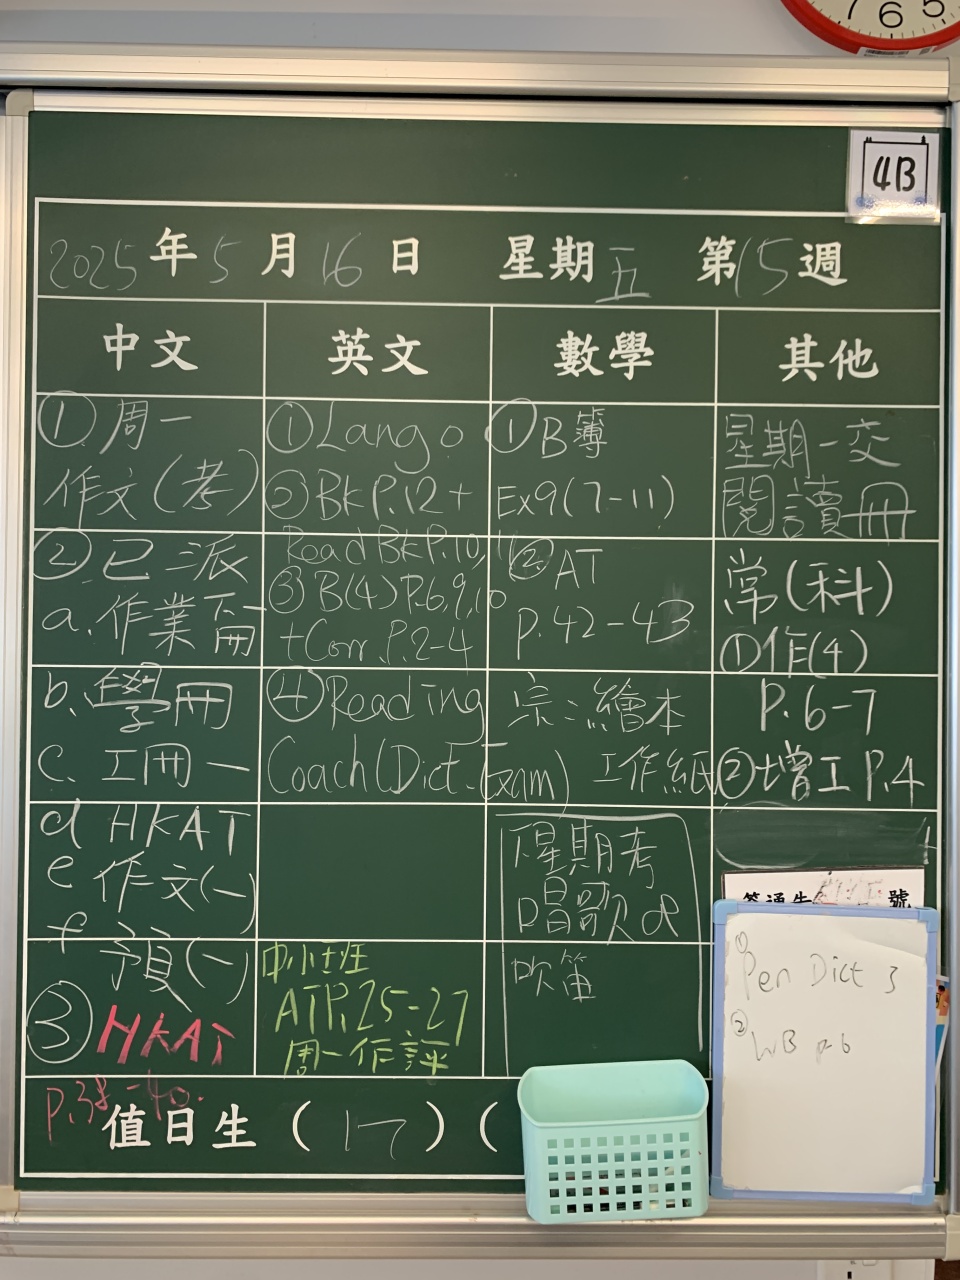 7 6 5
4B
2025年5月16日 星期五 第15週
中文
①周一
作文(考)
②已派
a.作業
b.學冊
c.工冊一
d HKAT
e 作文(一)
f 預(一)
③HKAT
P.38-40.
英文
①Lango
②Bk P.12+
Read Bk P.10, 11
③B(4)P.6,9,10
+Corr. P.2-4
④Reading
Coach(Dict. Exam)
中小班
AT P.25-27
周一作評
數學
①B簿
Ex9(7-11)
②AT
P.42-43
宗:繪本
工作紙
下星期考
唱歌
吹笛
其他
星期一交
閱讀冊
常(科)
①作(4)
P.6-7
②增工P.4
號
① Pen Dict 3
② WB p.6
值日生(17)(